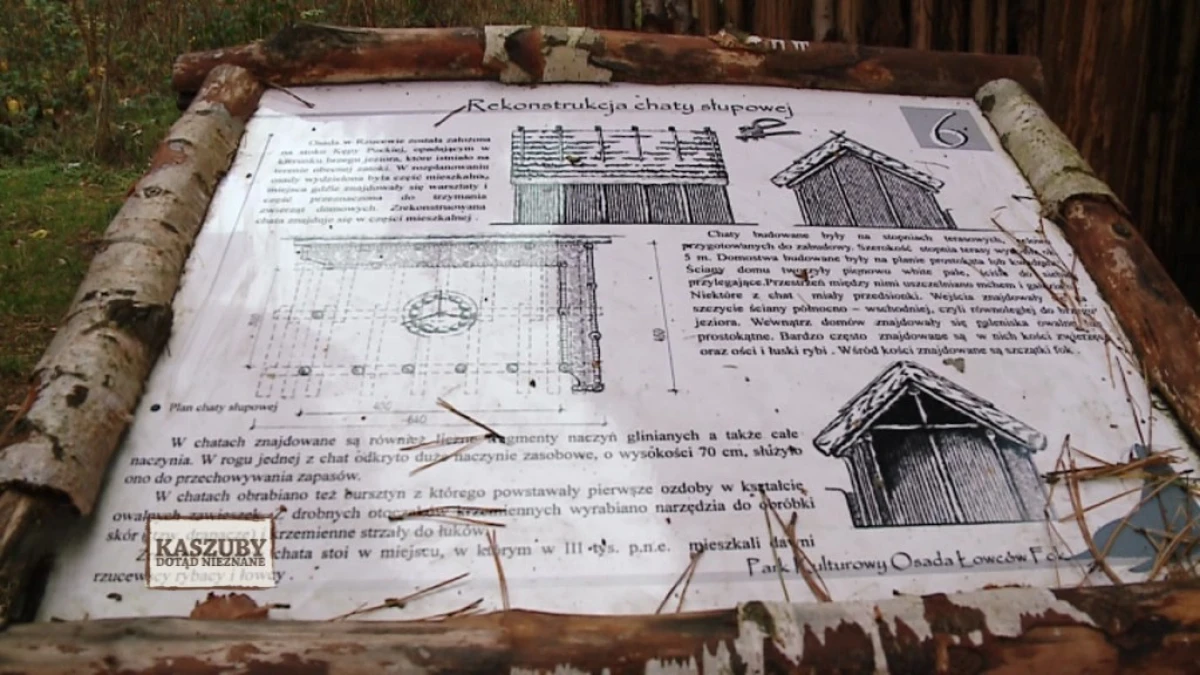 Rekonstrukcja chaty słupowej
6
Osada w Rzucewie została założona
na stoku Kępy Puckiej, opadającym w
kierunku brzegu jeziora, które istniało na
terenie obecnej zatoki. W rozplanowaniu
osady wydzielona była część mieszkalna,
miejsca gdzie znajdowały się warsztaty i
część przeznaczona do trzymania
zwierząt domowych. Zrekonstruowana
chata znajduje się w części mieszkalnej.
Chaty budowane były na stopniach terasowych,
przygotowanych do zabudowy. Szerokość stopnia terasy
5 m. Domostwa budowane były na planie prostokąta lub
Ściany domu tworzyły pionowo wbite pale, ściśle do siebie
przylegające.Przestrzeń między nimi uszczelniano mchem i
Niektóre z chat miały przedsionki. Wejścia znajdowały
szczycie ściany północno – wschodniej, czyli równoległej do brzegu
jeziora. Wewnątrz domów znajdowały się paleniska owalne
prostokątne. Bardzo często znajdowane są w nich kości zwierzęce
oraz ości i łuski rybi . Wśród kości znajdowane są szczątki fok.
60
Plan chaty słupowej
400
640
W chatach znajdowane są również liczne fragmenty naczyń glinianych a także całe
naczynia. W rogu jednej z chat odkryto duże naczynie zasobowe, o wysokości 70 cm, służyło
ono do przechowywania zapasów.
W chatach obrabiano też bursztyn z którego powstawały pierwsze ozdoby w kształcie
owalnych zawieszek. Z drobnych otoczaków krzemiennych wyrabiano narzędzia do obróbki
skór krzemienne strzały do łuków.
chata stoi w miejscu, w którym w III tys. p.n.e. mieszkali dawni
rzucewscy rybacy i łowcy .
Park Kulturowy Osada Łowców Fok
KASZUBY
DOTĄD NIEZNANE